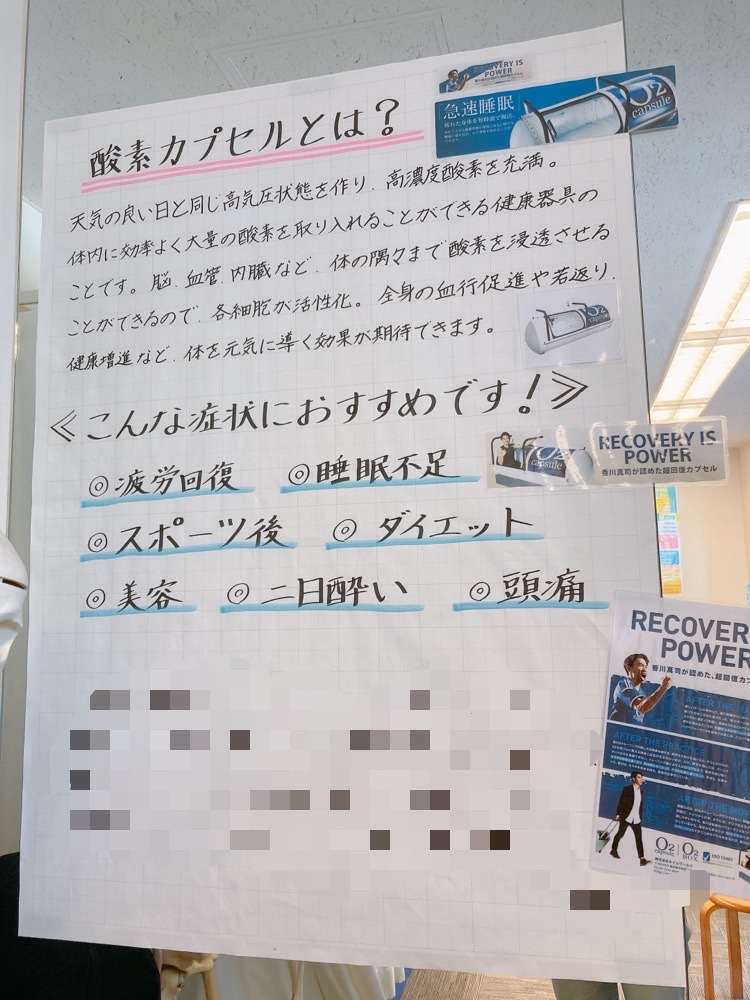 酸素カプセルとは？
天気の良い日と同じ高気圧状態を作り、高濃度酸素を充満。
体内に効率よく大量の酸素を取り入れることができる健康器具の
ことです。脳、血管、内臓など、体の隅々まで酸素を浸透させる
ことができるので、各細胞が活性化。全身の血行促進や若返り、
健康増進など、体を元気に導く効果が期待できます。
≪こんな症状におすすめです！≫
◎疲労回復 ◎睡眠不足
◎スポーツ後 ◎ダイエット
◎美容 ◎二日酔い ◎頭痛
RECOVERY IS
POWER
急速睡眠
O2
capsule
O2
O2
capsule
RECOVERY IS
POWER
香川真司が認めた超回復カプセル
RECOVER
POWER
香川真司が認めた、超回復カプ
AFTER THE
AFTER THE PRACTICE
O2
capsule
O2
BOX